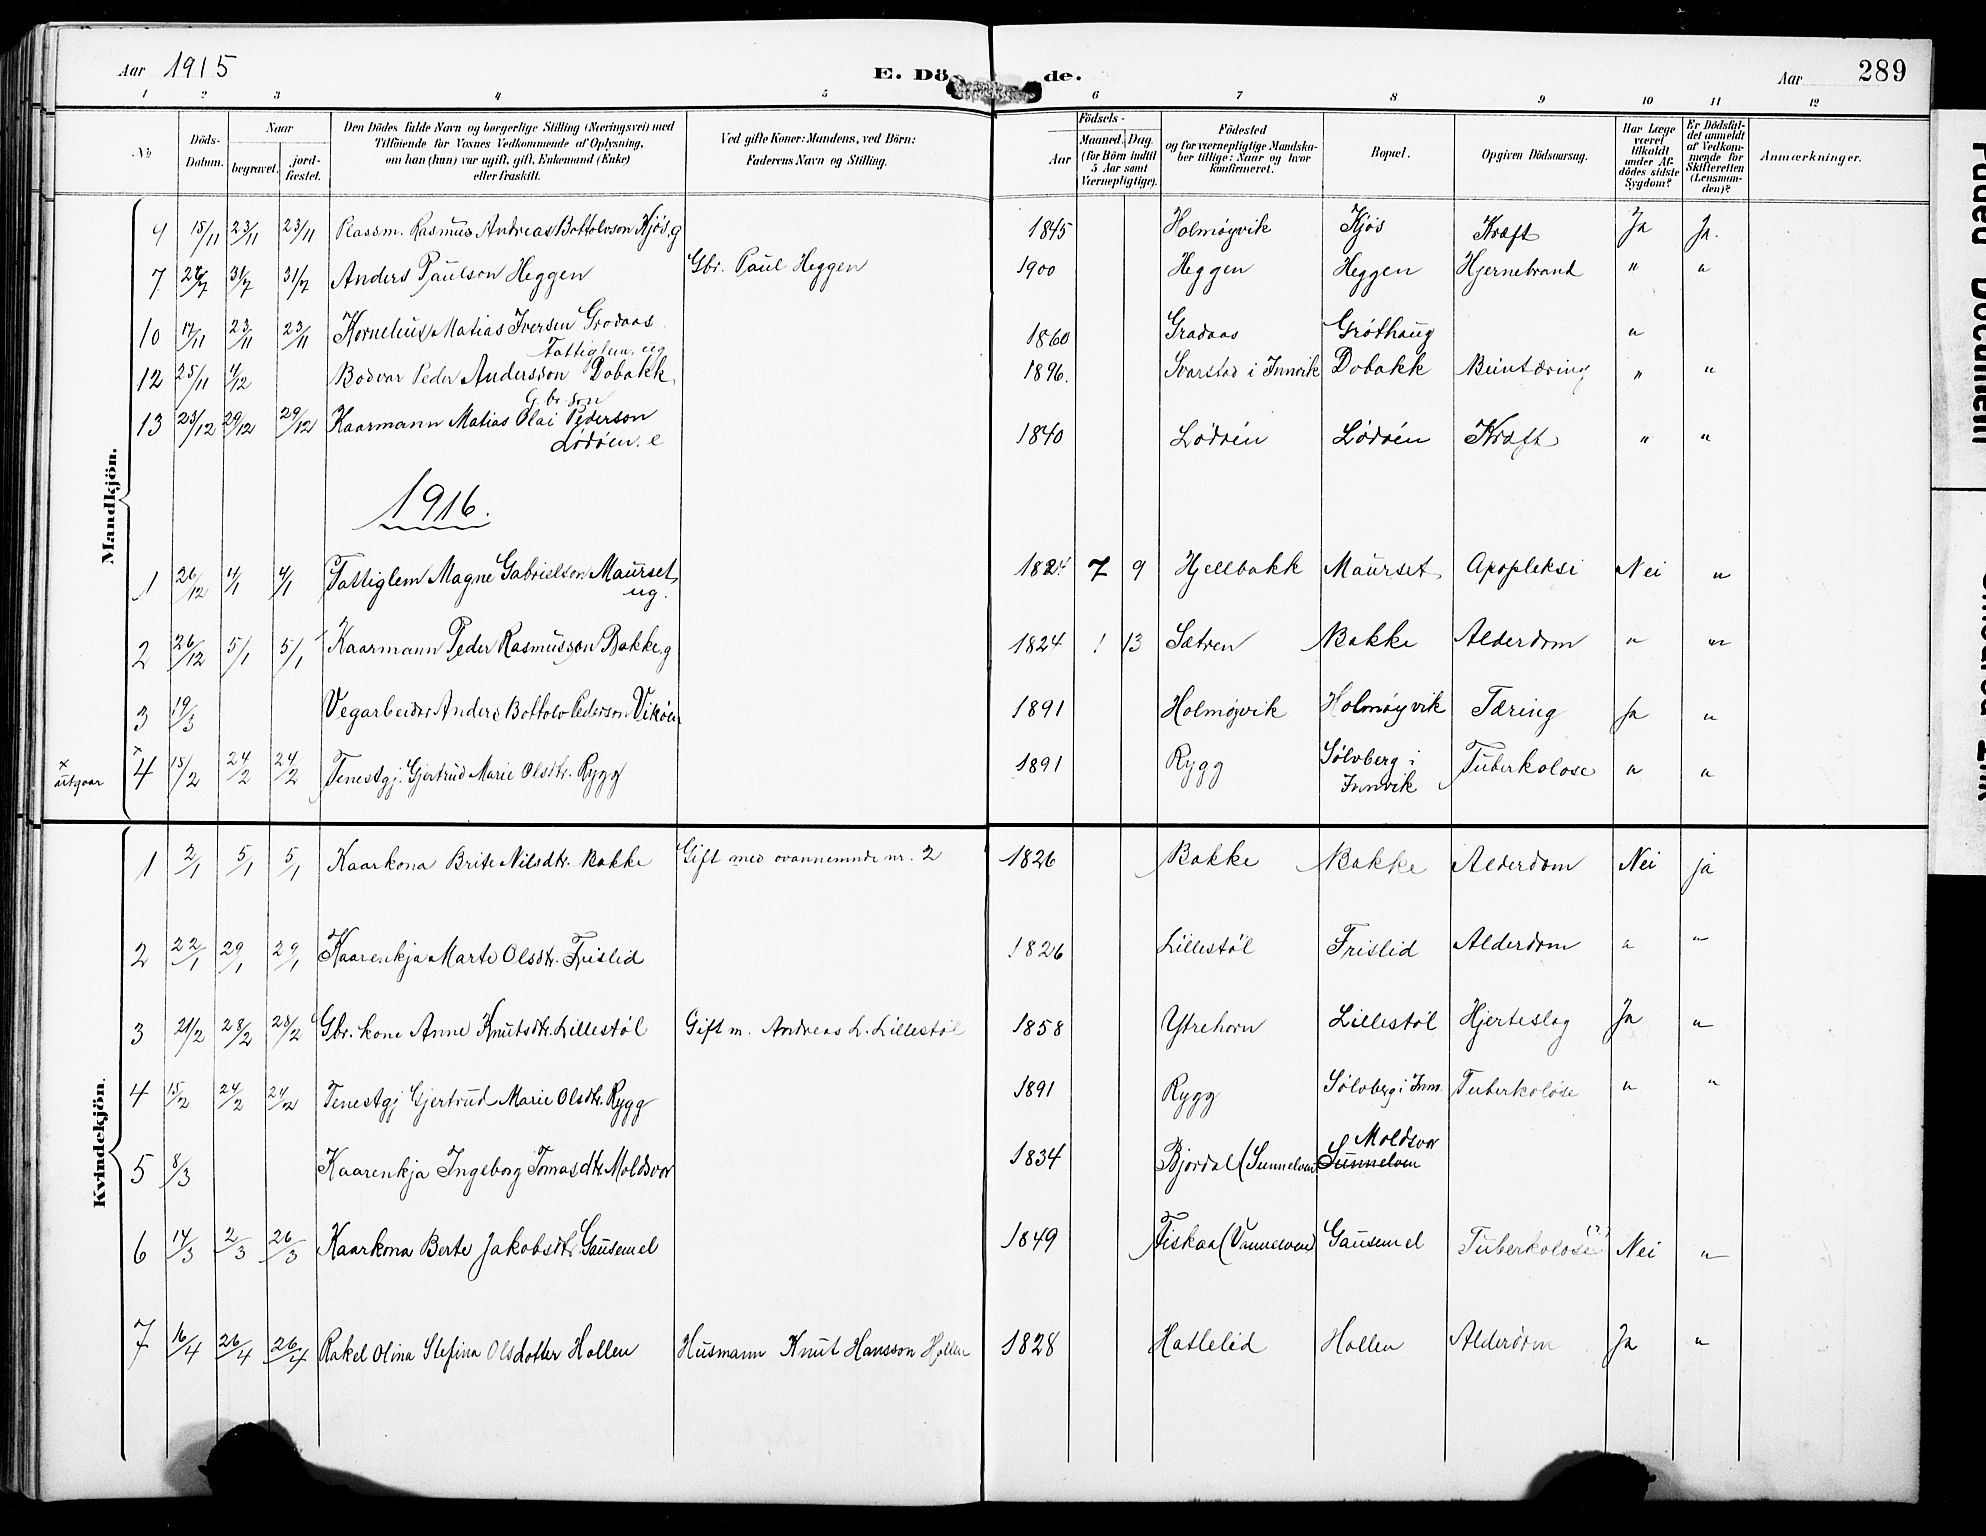 Aar 1915 E. Dö de. Aar 289
1 2 3 4 5 6 7 8 9 10 11 12
No Döds-Datum. Naar begravet. jord-fæstet. Den Dödes fulde Navn og borgerlige Stilling (Næringsvei) med Tilföiende for Voxnes Vedkommende af Oplysning, om han (hun) var ugift, gift, Enkemand (Enke) eller fraskilt. Ved gifte Koner: Mandens, ved Börn: Faderens Navn og Stilling. Aar Födsels- Maaned. Dag. (for Börn indtil 5 Aar samt Værnepligtige). Födested og for værnepligtige Mandskaber tillige: Naar og hvor konfirmeret. Bopæl. Opgiven Dödsaarsag. Har Læge været tilkaldt under Afdödes sidste Sygdom? Er Dödsfaldet anmeldt af Vedkommende for Skifteretten (Lensmanden)? Anmærkninger.
Mandkjön.
9 15/11 23/11 23/11 Plassm. Rasmus Andreas Bottolvson Kjøs, g 1845 Holmøyvik Kjøs Kræft Ja Ja.
7 31/7 31/7 Anders Paulson Heggen Gbr. Paul Heggen 1900 Heggen Heggen Hjernebrand " "
10 17/11 23/11 23/11 Kornelius Matias Iversen Grodaas 1860 Gradaas Grøthaug "
Fattiglem. ug
12 25/11 4/12 Bodvar Peder Andersson Dobakk 1896. Svarstad i Innvik Dobakk Beintæring " "
Gbr. son
13 23/12 29/12 29/12 Kaarmann Matias Olai Pederson 1840 Lødøen Lødøen Kræft " "
Lødøen. e
1916.
1 26/12 4/1 4/1 Fattiglem Magne Gabrielson Maurset 1824 7 9 Hjellbakk Maurset Apopleksi Nei "
ug.
2 26/12 5/1 5/1 Kaarmann Peder Rasmusson Bakke, g 1824 1 13 Sætren Bakke Alderdom " "
3 19/3 Vegarbeider Anders Bottolv Pederson Vikøen 1891 Holmøyvik Holmøyvik Tæring Ja "
x utgaar x4 15/2 24/2 24/2 Tenestgj. Gjertrud Marie Olsdtr. Rygg 1891 Rygg Sølvberg i Innvik Tuberkolose " "
Kvindekjön.
1 2/1 5/1 5/1 Kaarkona Brite Nilsdtr. Bakke Gift med ovannemnde nr. 2 1826 Bakke Bakke Alderdom Nei ja
2 22/1 29/1 29/1 Kaarenkja Marte Olsdtr. Frislid 1826 Lillestøl Frislid Alderdom " "
3 21/2 28/2 28/2 Gbr. kone Anne Knutsdtr. Lillestøl Gift m. Andreas L. Lillestøl 1858 Ytrehorn Lillestøl Hjerteslag Ja "
4 15/2 24/2 24/2 Tenestgj Gjertrud Marie Olsdtr. Rygg 1891 Rygg Sølvberg i Inn. Tuberkoløse " "
5 8/3 Kaarenkja Ingeborg Tomasdtr Moldsvor 1834 Bjordal (Sunnelven) Moldsvor Sunnelven
6 14/3 2/3 26/3 Kaarkona Berte Jakobsdtr. Gausemel 1849 Fiskaa (Vannelven) Gausemel Tuberkolose (?) Nei "
7 16/4 26/4 26/4 Rakel Olina Stefina Olsdotter Hollen Husmann Knut Hansson Hollen 1828 Hatlelid Hollen Alderdom Ja "